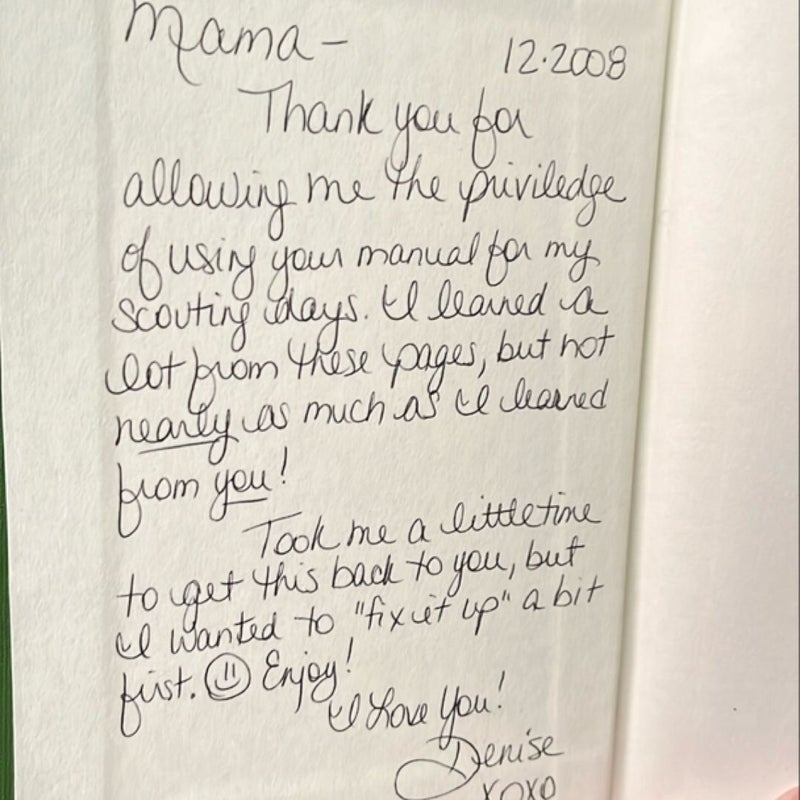 Mama-
12.2008
Thank you for
allowing me the priviledge
of using your manual for my
scouting days. I learned a
lot from these pages, but not
nearly as much as I learned
from you!
Took me a little time
to get this back to you, but
I wanted to "fix it up" a bit
first. Enjoy!
I Love You!
Denise
XOXO